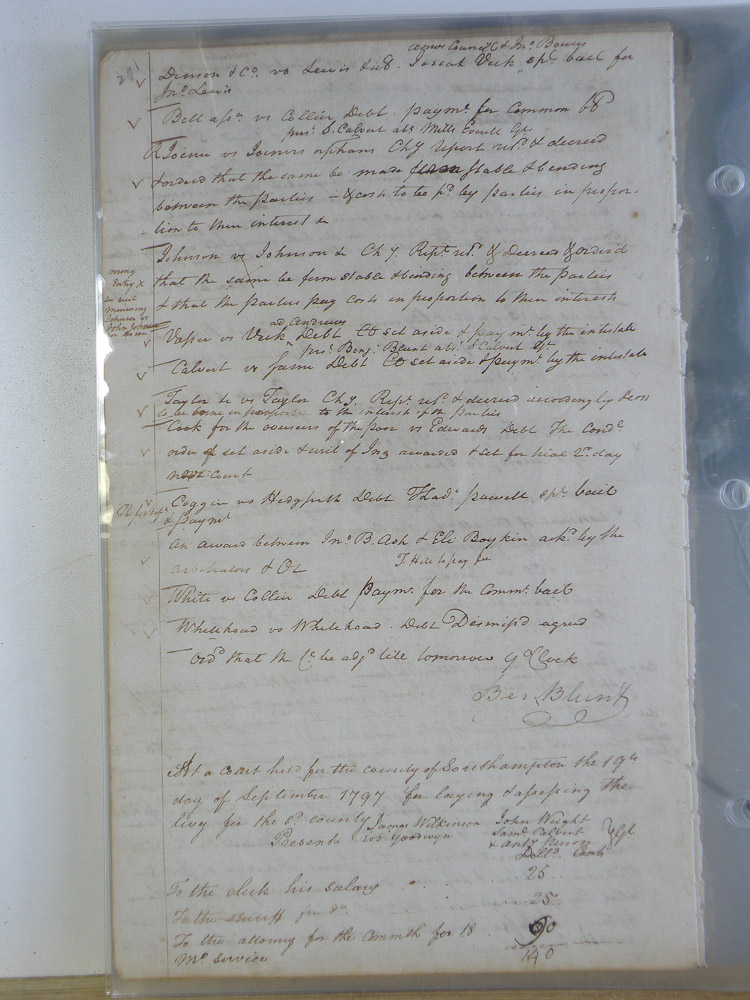 201
Council & Jno. Bowers
Denson & Co. vs Lewis &c. Josiah Vick spl. bail for
Jno. Lewis
Bell assee vs Collier Debt paymt. for Common
prest. S. Calvert abs Mills Everitt Gt
R Joiner vs Joiners orphans Chy report retd. & decreed
& ordered that the same be made firm stable & binding
between the parties — & costs to be pd. by parties in propor-
tion to their interest &c
Johnson vs Johnson &c Chy. Rept. retd. & Decreed & ordered
that the same be firm stable & binding between the parties
& that the parties pay Costs in proportion to their interests
wrong
Entry X
Johnson vs
John Johnson
ad. Andrews
Vasser vs Vick Debt CO set aside & paymt. by the intestate
prest. Benj. Blunt abst. S Calvert Gt
Calvert vs same Debt CO set aside & paymt. by the intestate
Taylor &c vs Taylor Chy. Rept. retd. & decreed accordingly
to be borne in proportion to the interests of the parties
Cook for the overseers of the poor vs Edwards Debt The Condl.
order set aside & writ of Inq awarded & set for trial 2d. day
next court
Coggin vs Hedgpeth Debt Thads. Powell spl. bail
& paymt
An award between Jno. B. Ash & Eli Boykin ackd. by the
arbitrators & OR
T. Hill to pay fee
White vs Collier Debt Paymt. for the Comm. bail
Whitehead vs Whitehead. Debt Dismiss'd agreed
Ordd that the Ct. be adjd till tomorrow 9 oClock
Ben Blunt
At a court held for the county of Southampton the 19th
day of September 1797 for laying & assessing the
levy for the sd. county
Present James Wilkinson
Rob. Goodwyn
John Wright
Saml. Calvert
Gt
Dolls. Cents
To the clerk his salary 25
To the sheriff for do. 25
To the attorney for the Commth for 18 90
Mo. service
140